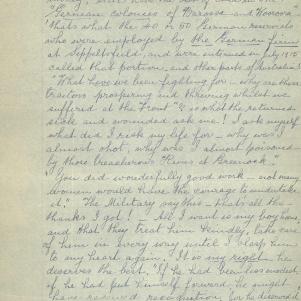 "German colonies of Marova and Noorova
thats what the 40 or 50 German reservists
who were employed by the German firms
at Seppeltsfield, and were interned in July 1915
called that portion, and other parts of Australia
"What have we been fighting for – why are these
traitors prospering and thriving whilst we
suffered at the Front" & is what the returned
sick and wounded ask me! I ask myself
what did I risk my life for – why was I
almost shot, why was I almost poisoned –
by those treacherous
You did wonderfully good work – not many
women would have the courage to undertake
it." The Military say this – thats all the
thanks I got! – All I want is my boy here
and that they treat him kindly, take care
of him in every way until I clasp him
to my heart again. It is my right – he
deserves the best. "If he had been less modest
if he had put himself forward, he might
have received recognition, he deserved